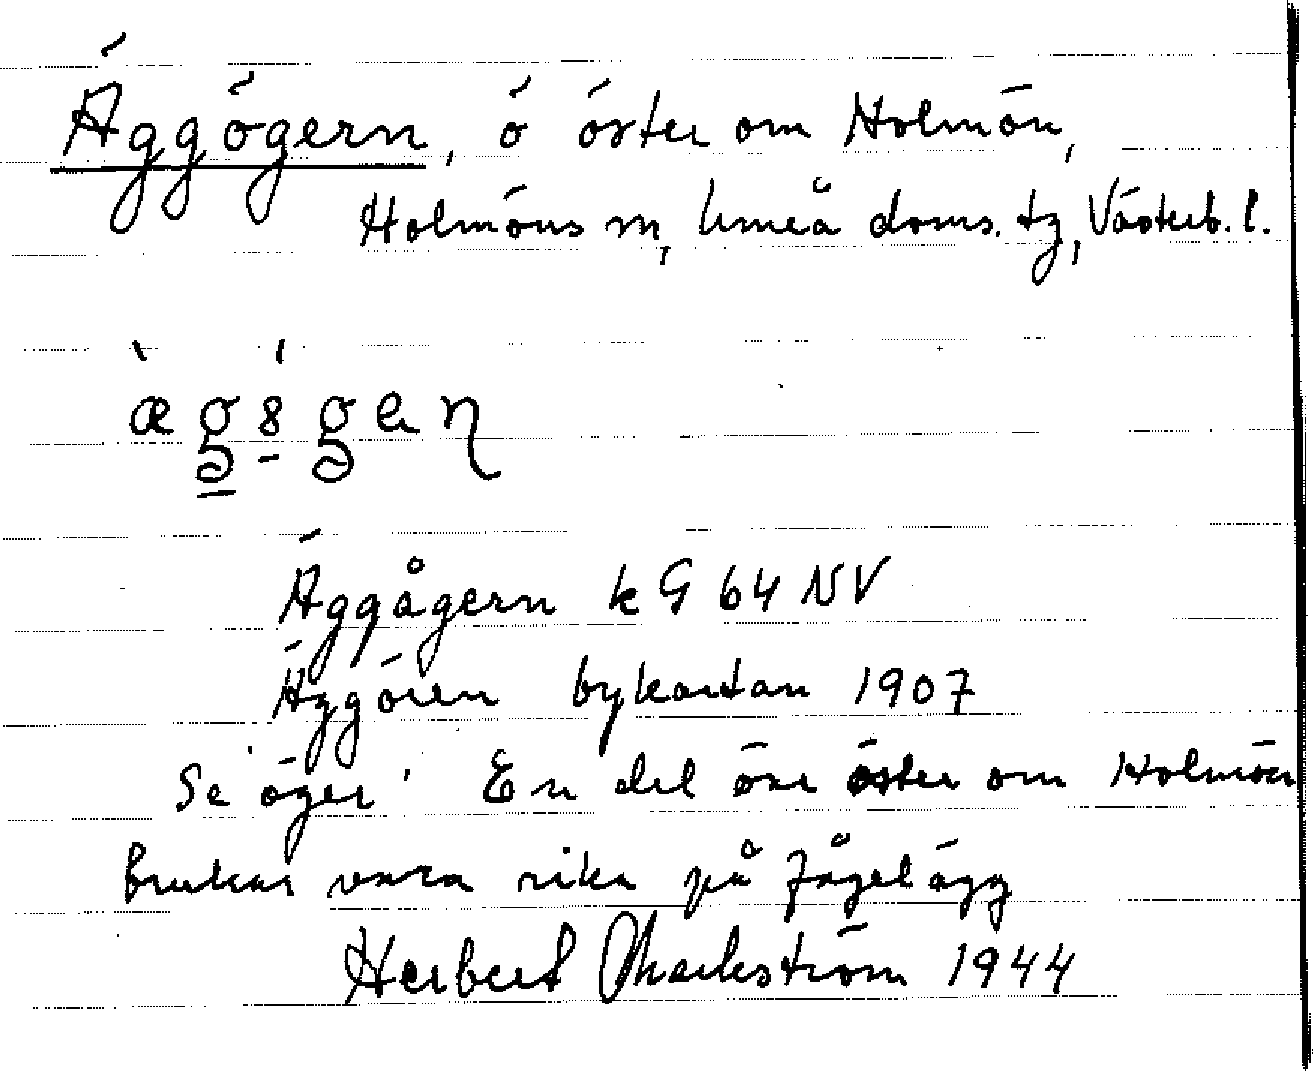 Äggögern, ö öster om Holmön,
Holmöns sn, Umeå doms. tg, Västerb. l.
Äggågern k G 64 NV
Äggören bykartan 1907
Se 'öger'. En del öar öster om Holmön
brukar vara rika på fågelägg
Herbert Markström 1944